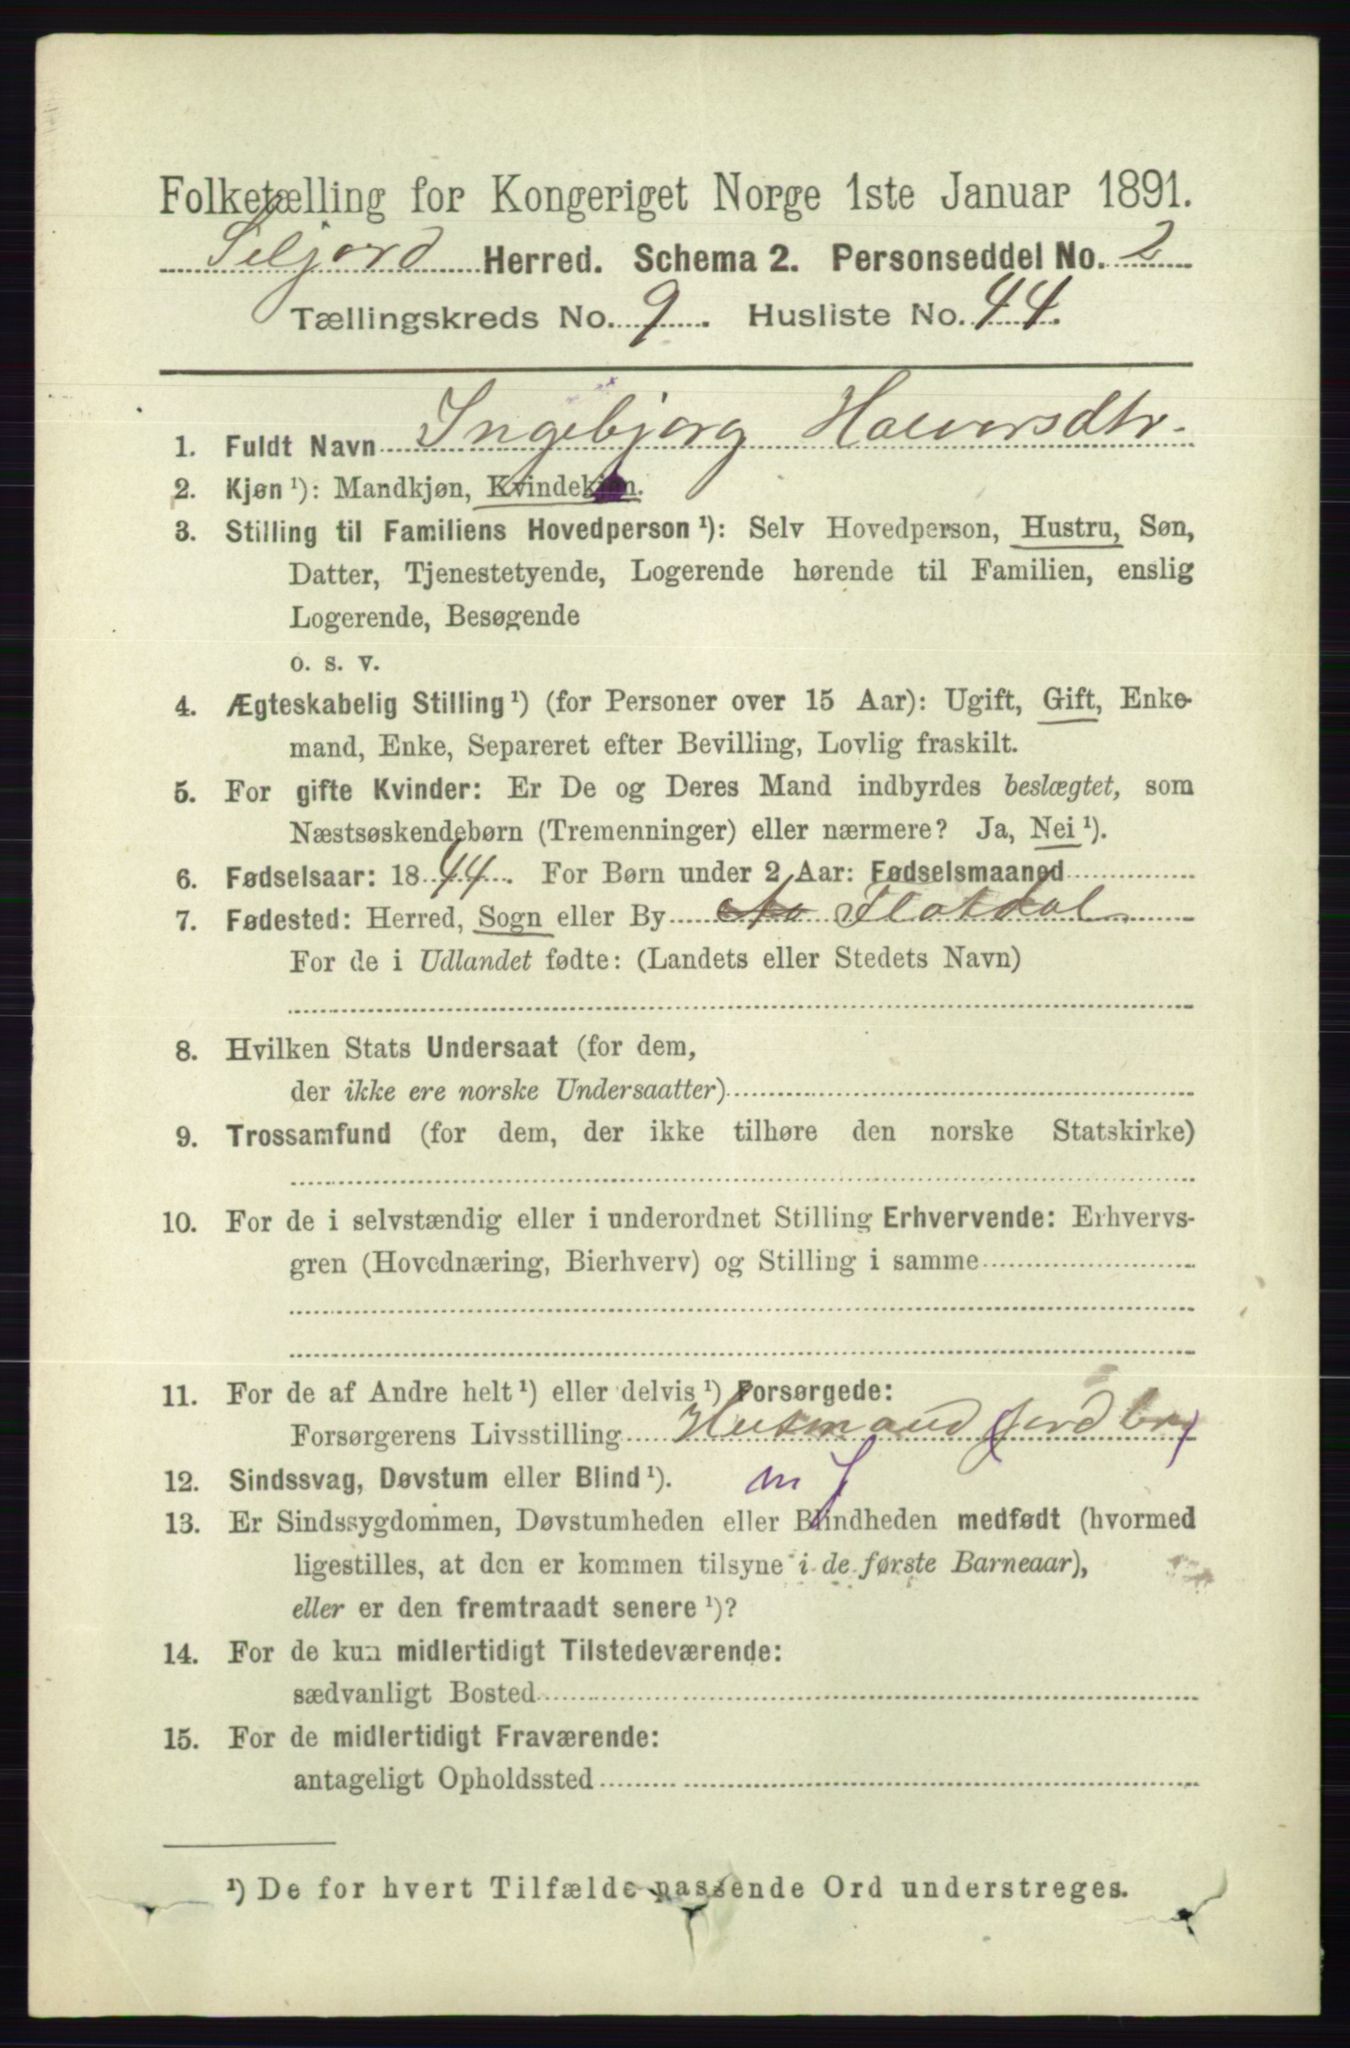 Folketælling for Kongeriget Norge 1ste Januar 1891.
Seljord Herred. Schema 2. Personseddel No. 2
Tællingskreds No. 9. Husliste No. 44.
1. Fuldt Navn Ingebjorg Halvorsdtr.
2. Kjøn ¹): Mandkjøn, Kvindekjøn.
3. Stilling til Familiens Hovedperson ¹): Selv Hovedperson, Hustru, Søn,
Datter, Tjenestetyende, Logerende hørende til Familien, enslig
Logerende, Besøgende
o. s. v.
4. Ægteskabelig Stilling ¹) (for Personer over 15 Aar): Ugift, Gift, Enke-
mand, Enke, Separeret efter Bevilling, Lovlig fraskilt.
5. For gifte Kvinder: Er De og Deres Mand indbyrdes beslægtet, som
Næstsøskendebørn (Tremenninger) eller nærmere? Ja, Nei ¹).
6. Fødselsaar: 1844. For Børn under 2 Aar: Fødselsmaaned
7. Fødested: Herred, Sogn eller By Flatdal
For de i Udlandet fødte: (Landets eller Stedets Navn)
8. Hvilken Stats Undersaat (for dem,
der ikke ere norske Undersaatter)
9. Trossamfund (for dem, der ikke tilhøre den norske Statskirke)
10. For de i selvstændig eller i underordnet Stilling Erhvervende: Erhvervs-
gren (Hovednæring, Bierhverv) og Stilling i samme
11. For de af Andre helt ¹) eller delvis ¹) Forsørgede:
Forsørgerens Livsstilling Husmand (jordbr)
12. Sindssvag, Døvstum eller Blind ¹). m J
13. Er Sindssygdommen, Døvstumheden eller Blindheden medfødt (hvormed
ligestilles, at den er kommen tilsyne i de første Barneaar),
eller er den fremtraadt senere ¹)?
14. For de kun midlertidigt Tilstedeværende:
sædvanligt Bosted
15. For de midlertidigt Fraværende:
antageligt Opholdssted
¹) De for hvert Tilfælde passende Ord understreges.